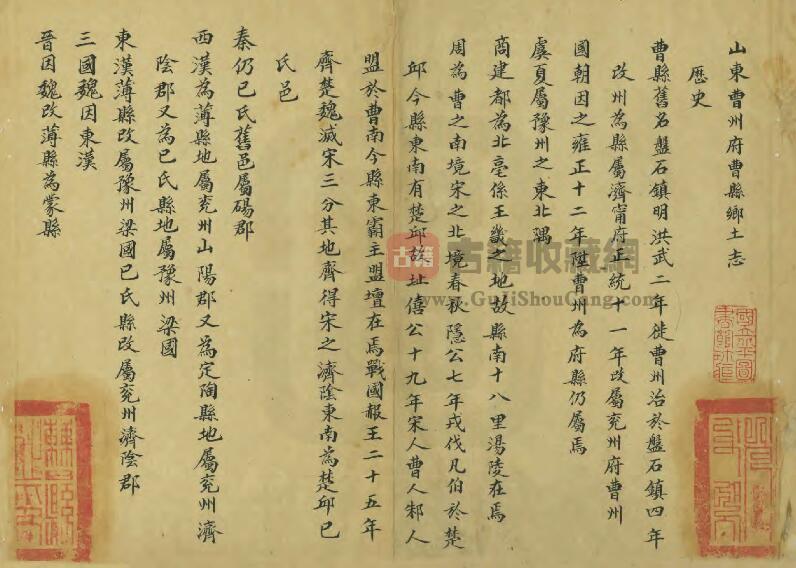 山東曹州府曹縣鄉土志
歷史
曹縣舊名盤石鎮明洪武二年徙曹州治於盤石鎮四年
改州為縣屬濟甯府正統十一年改屬兗州府曹州
國朝因之雍正十二年陞曹州為府縣仍屬焉
虞夏屬豫州之東北隅
商建都為北亳係王畿之地故縣南十八里湯陵在焉
周為曹之南境宋之北境春秋隱公七年戎伐凡伯於楚
邱今縣東南有楚邱故址僖公十九年宋人曹人邾人
盟於曹南今縣東霸主盟壇在焉戰國赧王二十五年
齊楚魏滅宋三分其地齊得宋之濟陰東南為楚邱已
氏邑
秦仍已氏舊邑屬碭郡
西漢為薄縣地屬兗州山陽郡又為定陶縣地屬兗州濟
陰郡又為已氏縣地屬豫州梁國
東漢薄縣改屬豫州梁國已氏縣改屬兗州濟陰郡
三國魏因東漢
晉因魏改薄縣為蒙縣
古籍
古籍收藏網
www.GuJiShouCang.com